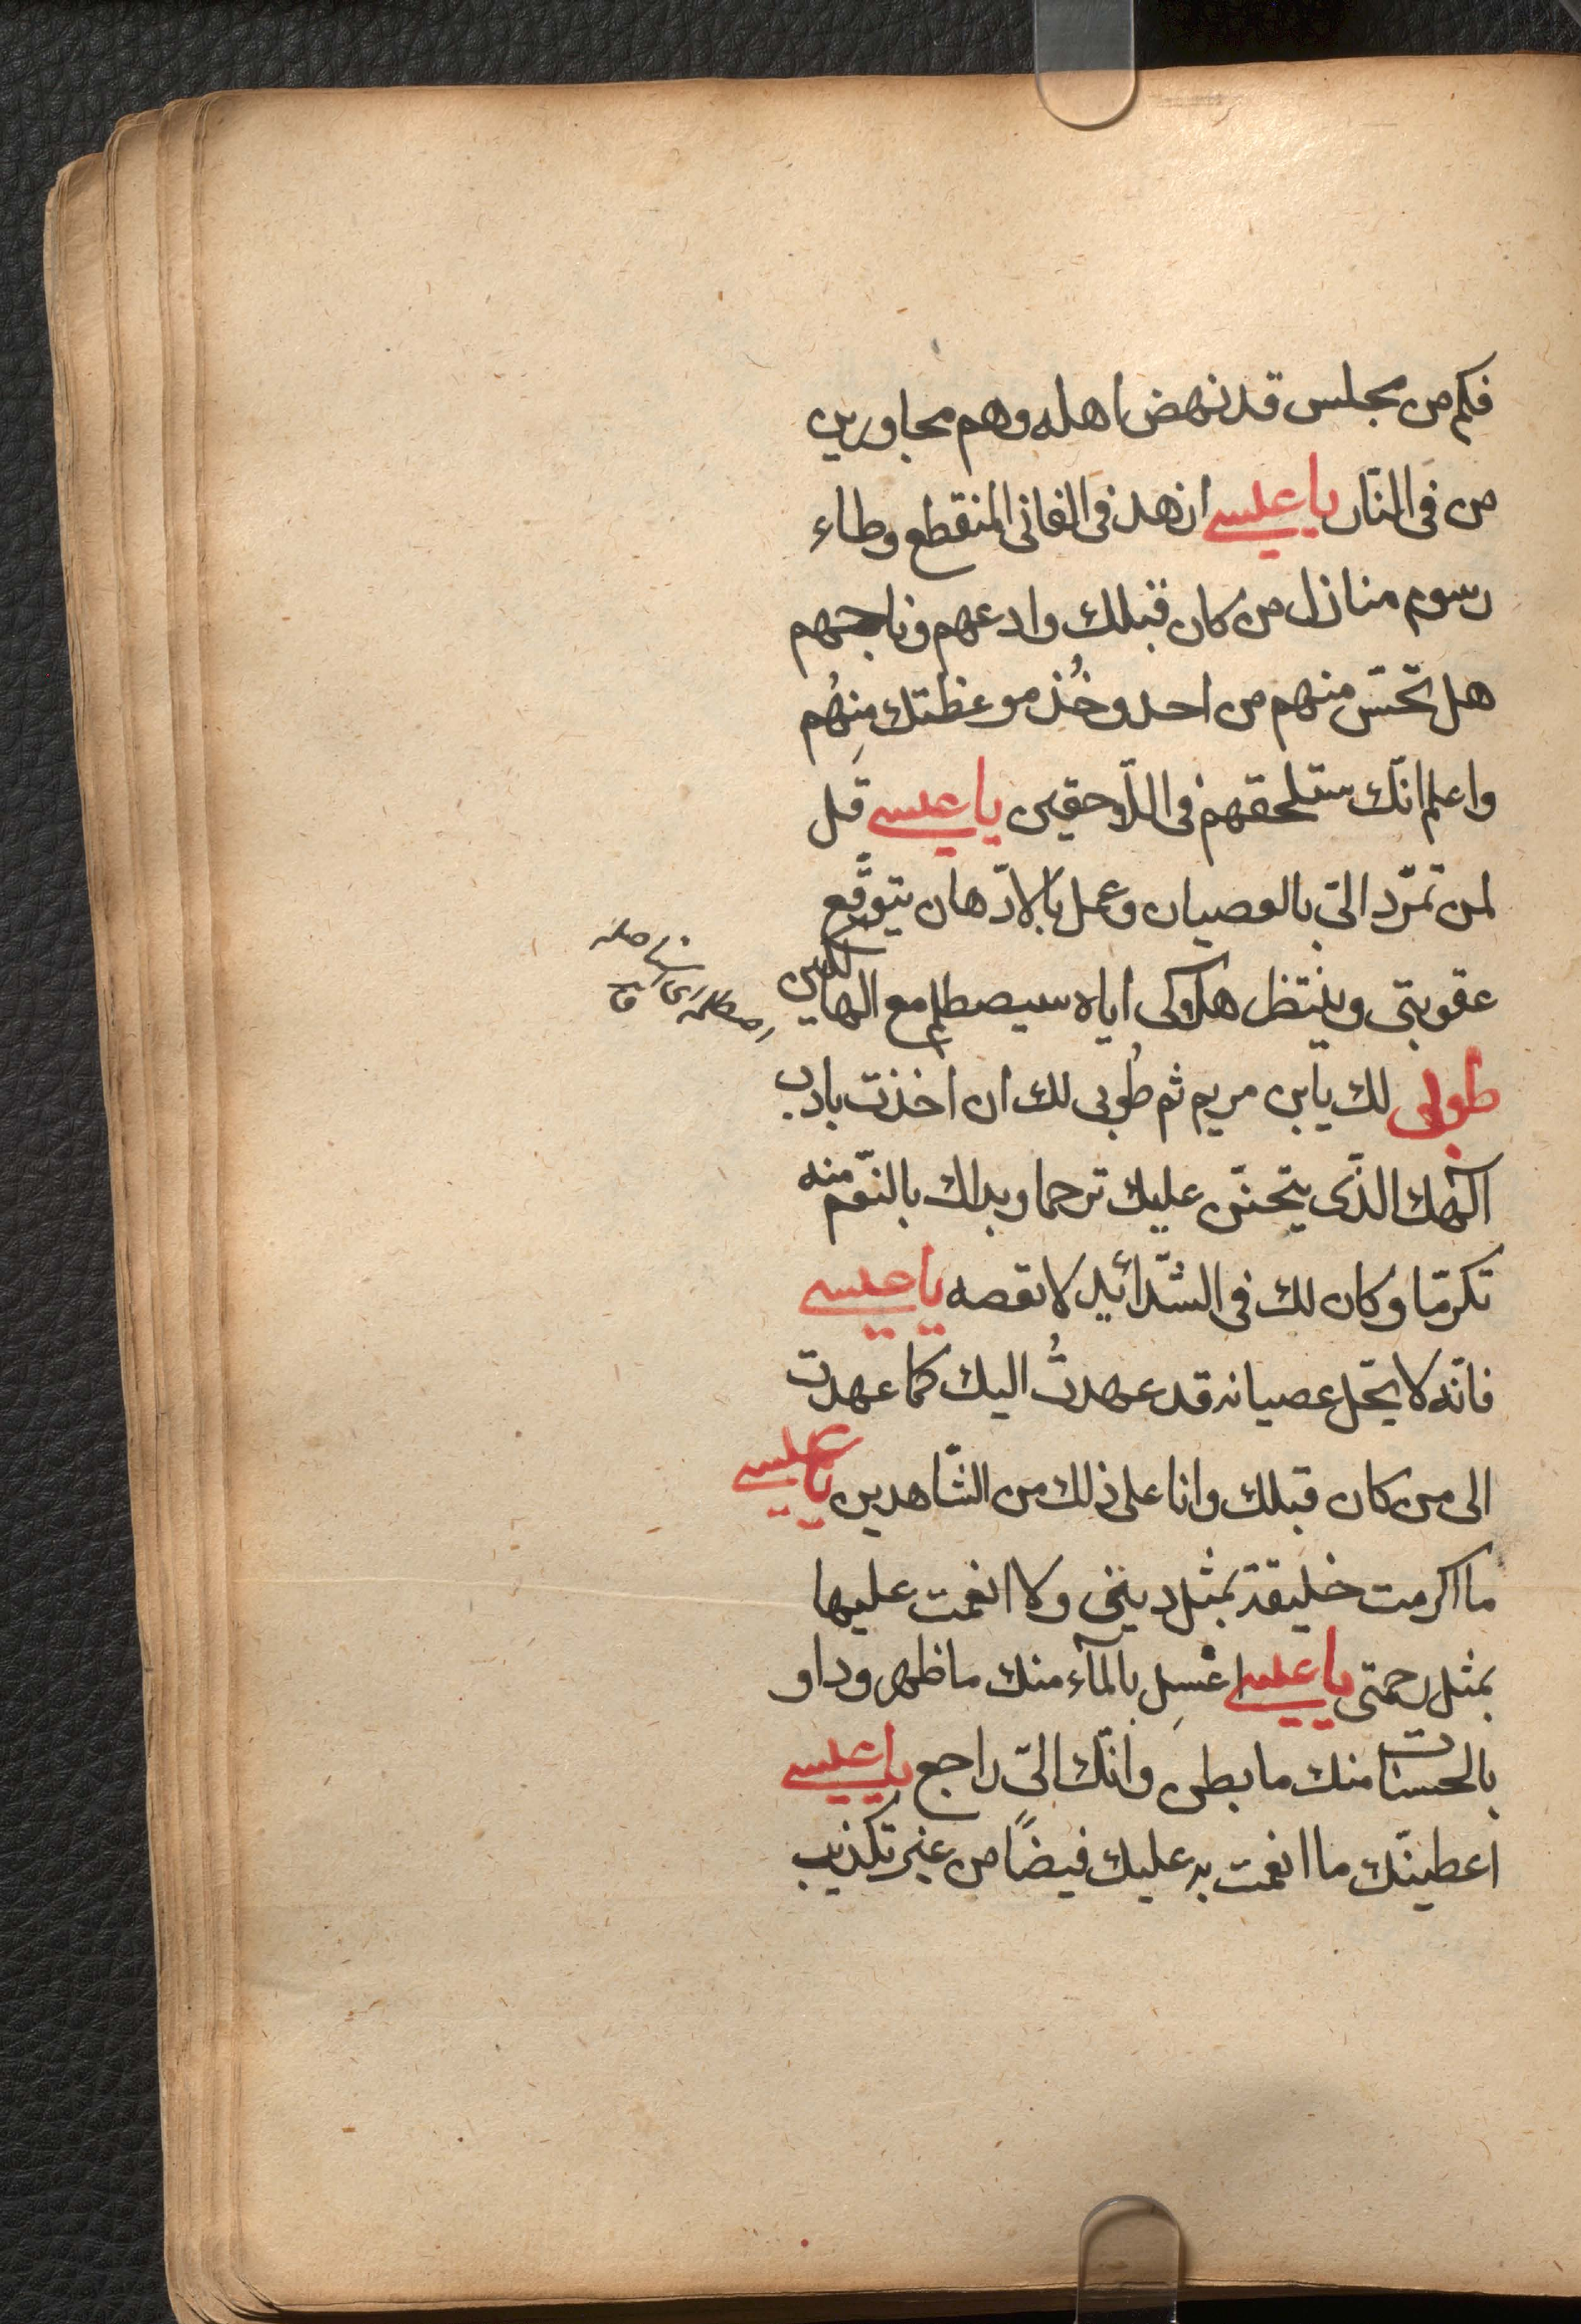 فكم من مجلس قد نهض اهله وهم مجاورين
من فى النّار يا عيسى ازهد فى الفانى المنقطع وطاء
رسوم منازل من كان قبلك وادعهم وناجهم
هل تحسّ منهم من احد وخُذ موعظتك منهُم
واعلم انّك ستلحقهم فى اللّاحقين يا عيسى قل
لمن تمرّد الىّ بالعصيان وعمل بالادّهان يتوقّع
عقوبتى وينتظر هلاكى اياه سيصطلم مع الهالكين
اصطلمه اى استاصله ق
طوبى لك يابن مريم ثم طُوبى لك ان اخذت بادب
الٓهك الذّى يتحنّن عليك ترحما وبداك بالنّعم منه
تكرمّا وكان لك فى الشّدائد لا تعصه يا عيسى
فانّه لا يحّل عصيانه قد عهدتُ اليك كما عهدت
الى من كان قبلك وانا على ذلك من الشّاهدين يا عيسى
ما اكرمت خليقة بمثل دينى ولا انعمت عليها
بمثل رحمتى يا عيسى اغسِل بالمآء منك ما ظهر وداو
بالحسنات منك ما بطن وانّك الىّ راجع يا عيسى
اعطيتك ما انعمت به عليك فيضًا من غير تكذيب